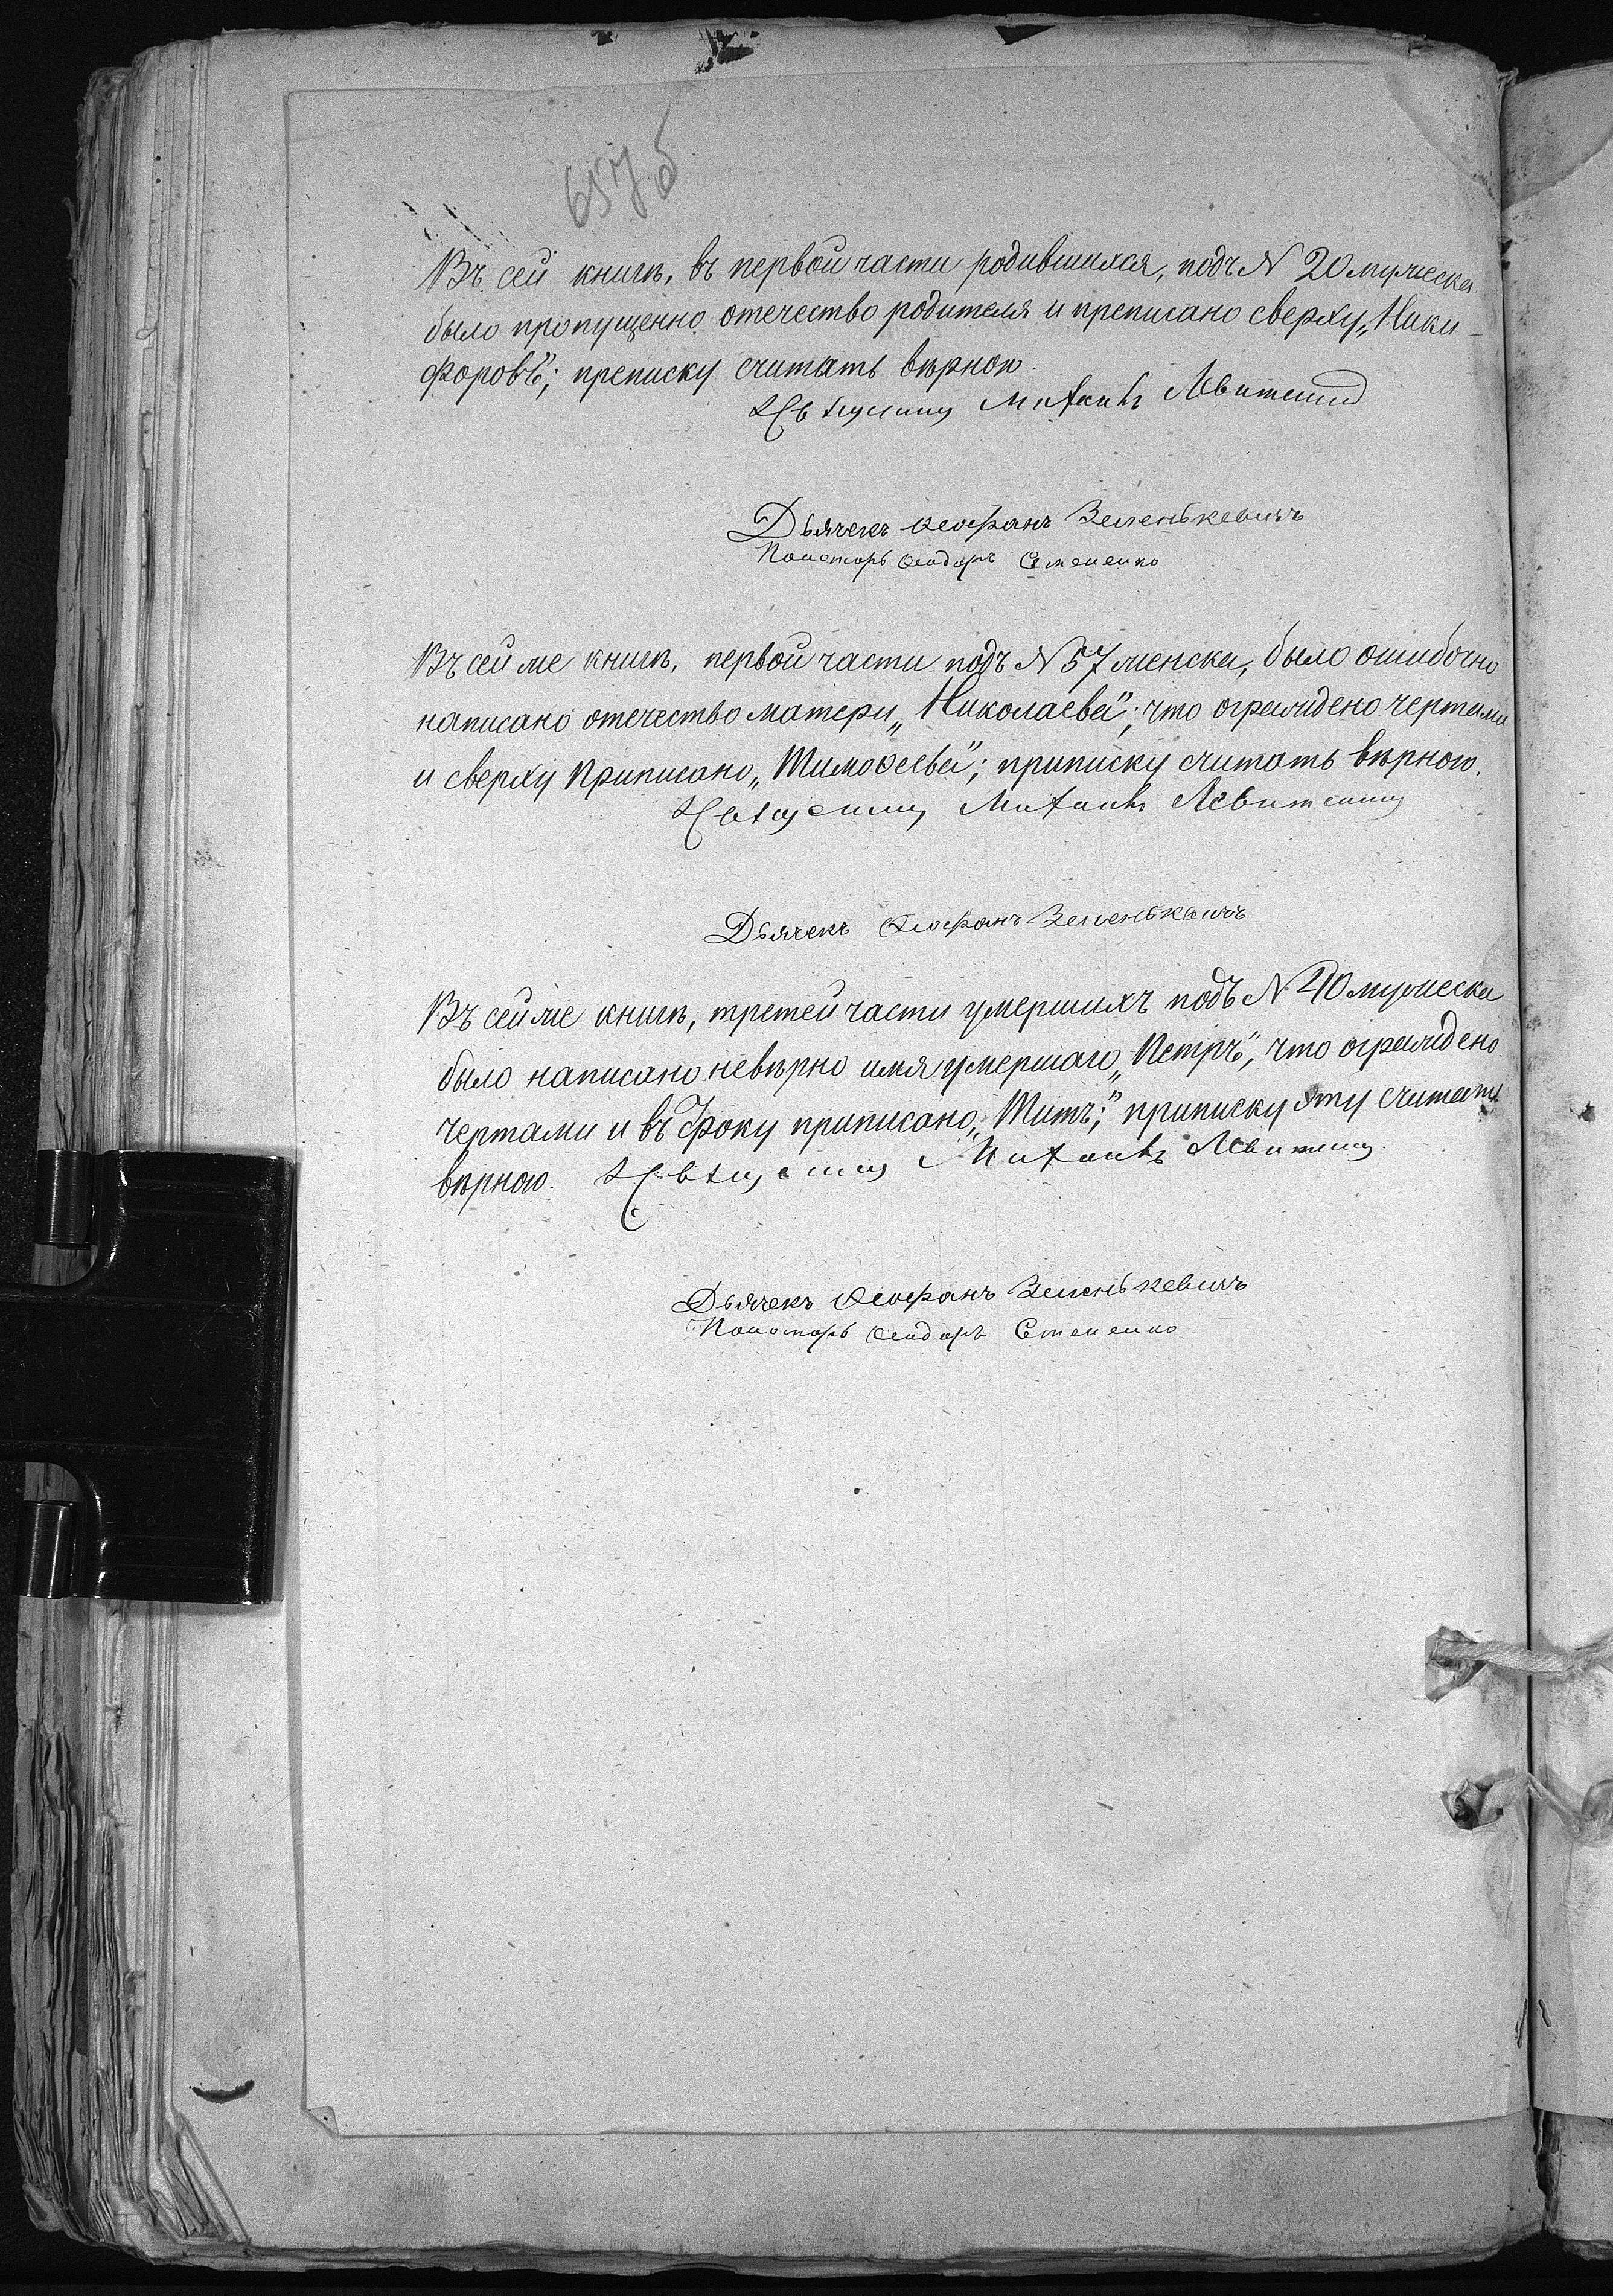 657 об
Въ сей книгѣ, въ первой части родившихся, подъ N 20 мужеска
было пропущенно отечество родителя и преписано сверху „Ники-
форовъ“; преписку считать вѣрною.
Священникъ Михаилъ Левитскій
Дьячекъ Ѳеофанъ Зеленькевичъ
Пономарь Ѳеодоръ Семененко
Въ сей же книгѣ, первой части подъ N 57 женска, было ошибочно
написано отечество матери „Николаева“; что ограждено чертами
и сверху приписано „Тимоѳеева“; приписку считать вѣрною.
Священникъ Михаилъ Левитскій
Дьячекъ Ѳеофанъ Зеленькевичъ
Въ сей же книгѣ, третей части умершихъ подъ N 40 мужеска
было написано невѣрно имя умершаго „Петръ“, что ограждено
чертами и въ боку приписано „Титъ;“ приписку эту считать
вѣрною. Священникъ Михаилъ Левитскій
Дьячекъ Ѳеофанъ Зеленькевичъ
Пономарь Ѳеодоръ Семененко